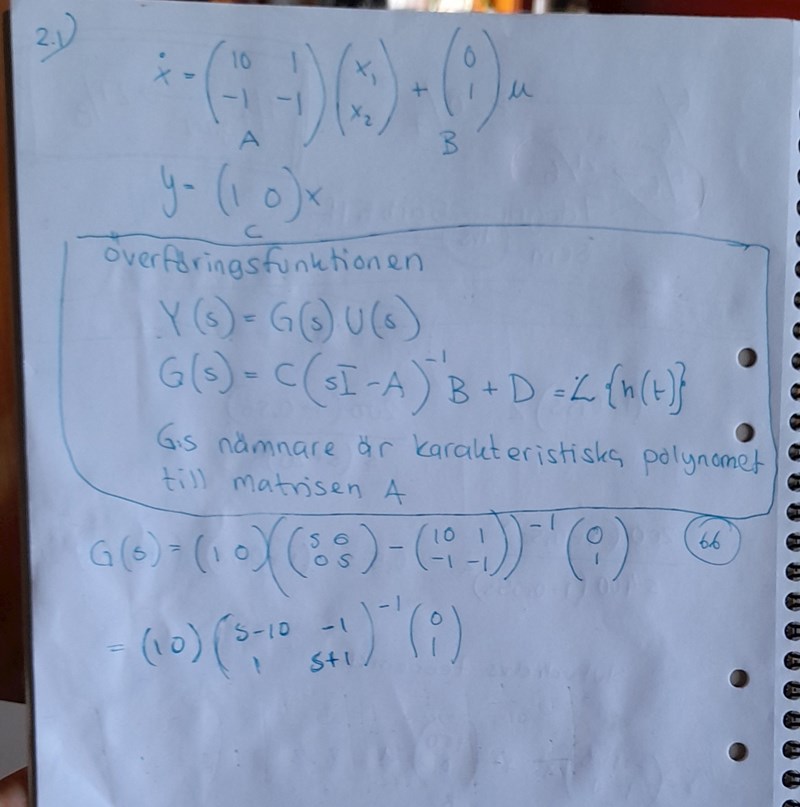 2.1)
ẋ = (10 1 -1 -1) (x₁ x₂) + (0 1) u
A B
y = (1 0) x
C
överföringsfunktionen
Y(s) = G(s) U(s)
G(s) = C (sI - A)⁻¹ B + D = L {h(t)}
G:s nämnare är karakteristiska polynomet
till matrisen A
G(s) = (1 0) ((s 0 0 s) - (10 1 -1 -1))⁻¹ (0 1) 66
= (1 0) (s-10 -1 1 s+1)⁻¹ (0 1)